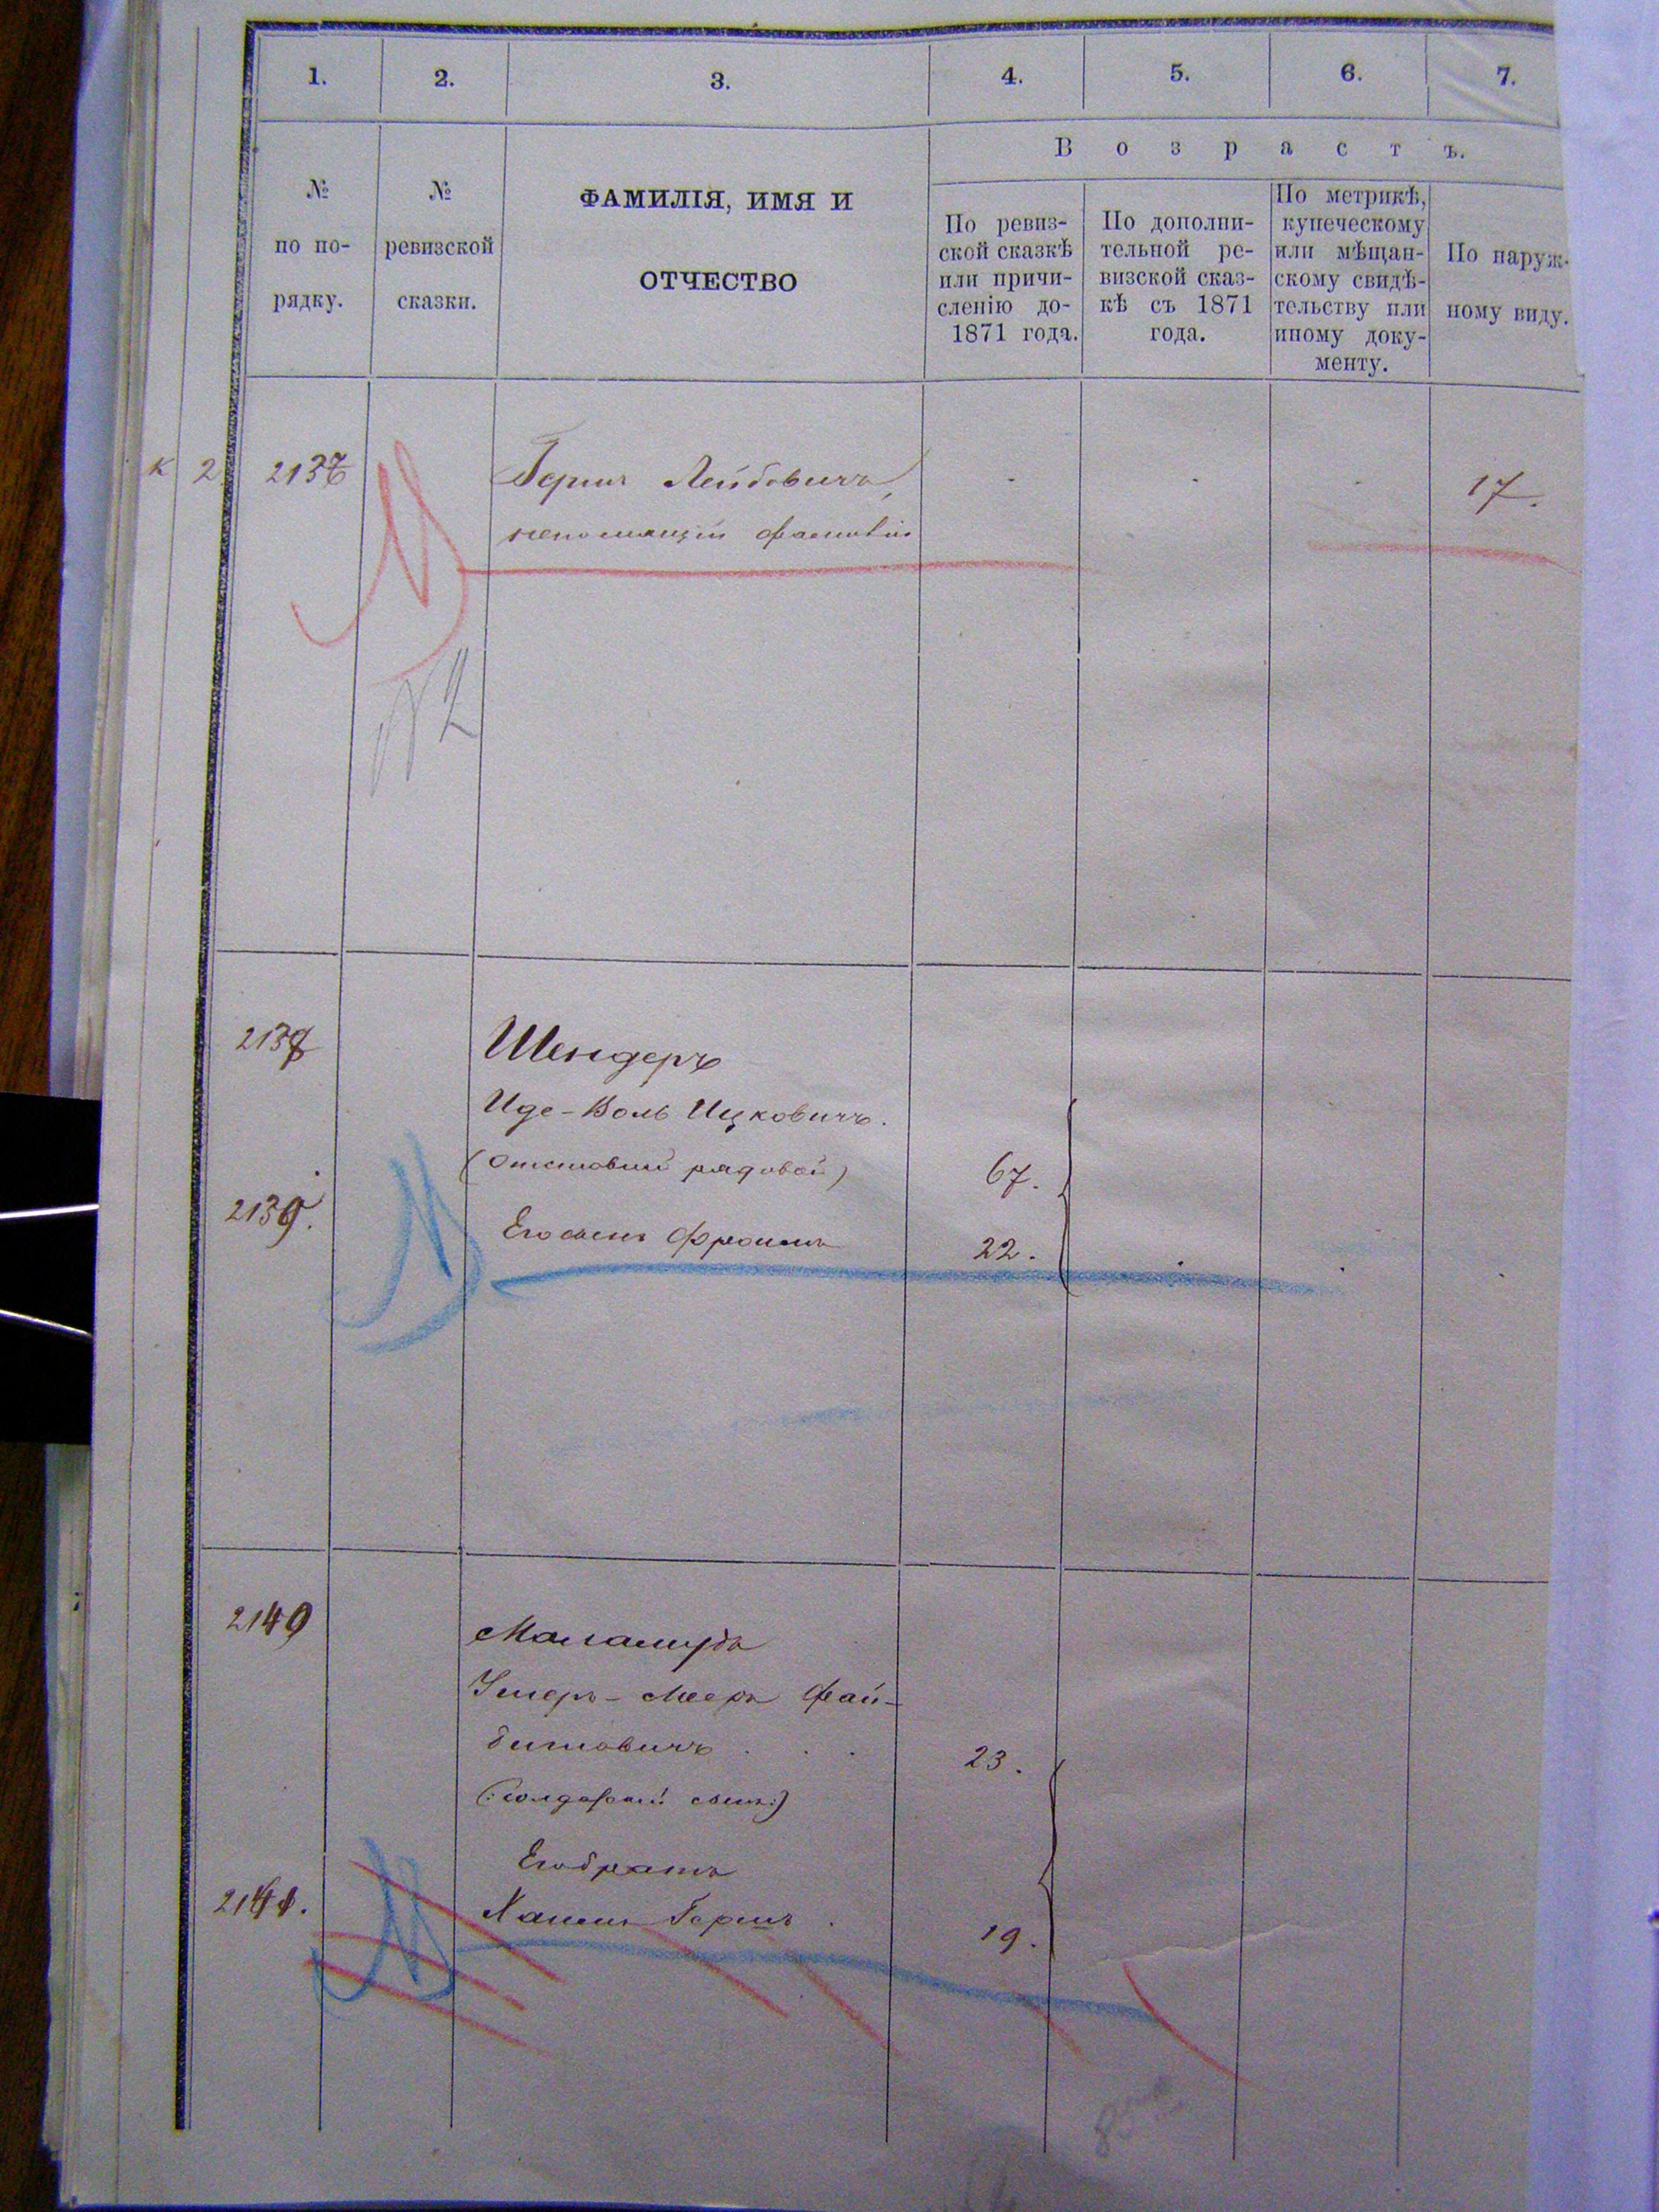 1. 2. 3. 4. 5. 6. 7.
Возрастъ.
№
по по-
рядку.
№
ревизской
сказки.
ФАМИЛІЯ, ИМЯ И
ОТЧЕСТВО
По ревиз-
ской сказкѣ
или причи-
сленію до-
1871 года.
По дополни-
тельной ре-
визской сказ-
кѣ съ 1871
года.
По метрикѣ,
купеческому
или мѣщан-
скому свидѣ-
тельству или
иному доку-
менту.
По наруж-
ному виду.
к 2 2137 Гершъ Лейбовичъ, 17.
непомнящій фамиліи
№ 2
2138 Шендеръ
Иде-Волъ Ицковичъ.
(отставной рядовой) 67.
2139. Его сынъ Фроимъ 22.
2140 Маламудъ
Умеръ-Мееръ Фай-
битовичъ . . . 23.
(:солдатскій сынъ:)
Его братъ
2141. Хаимъ Гершъ . 19.